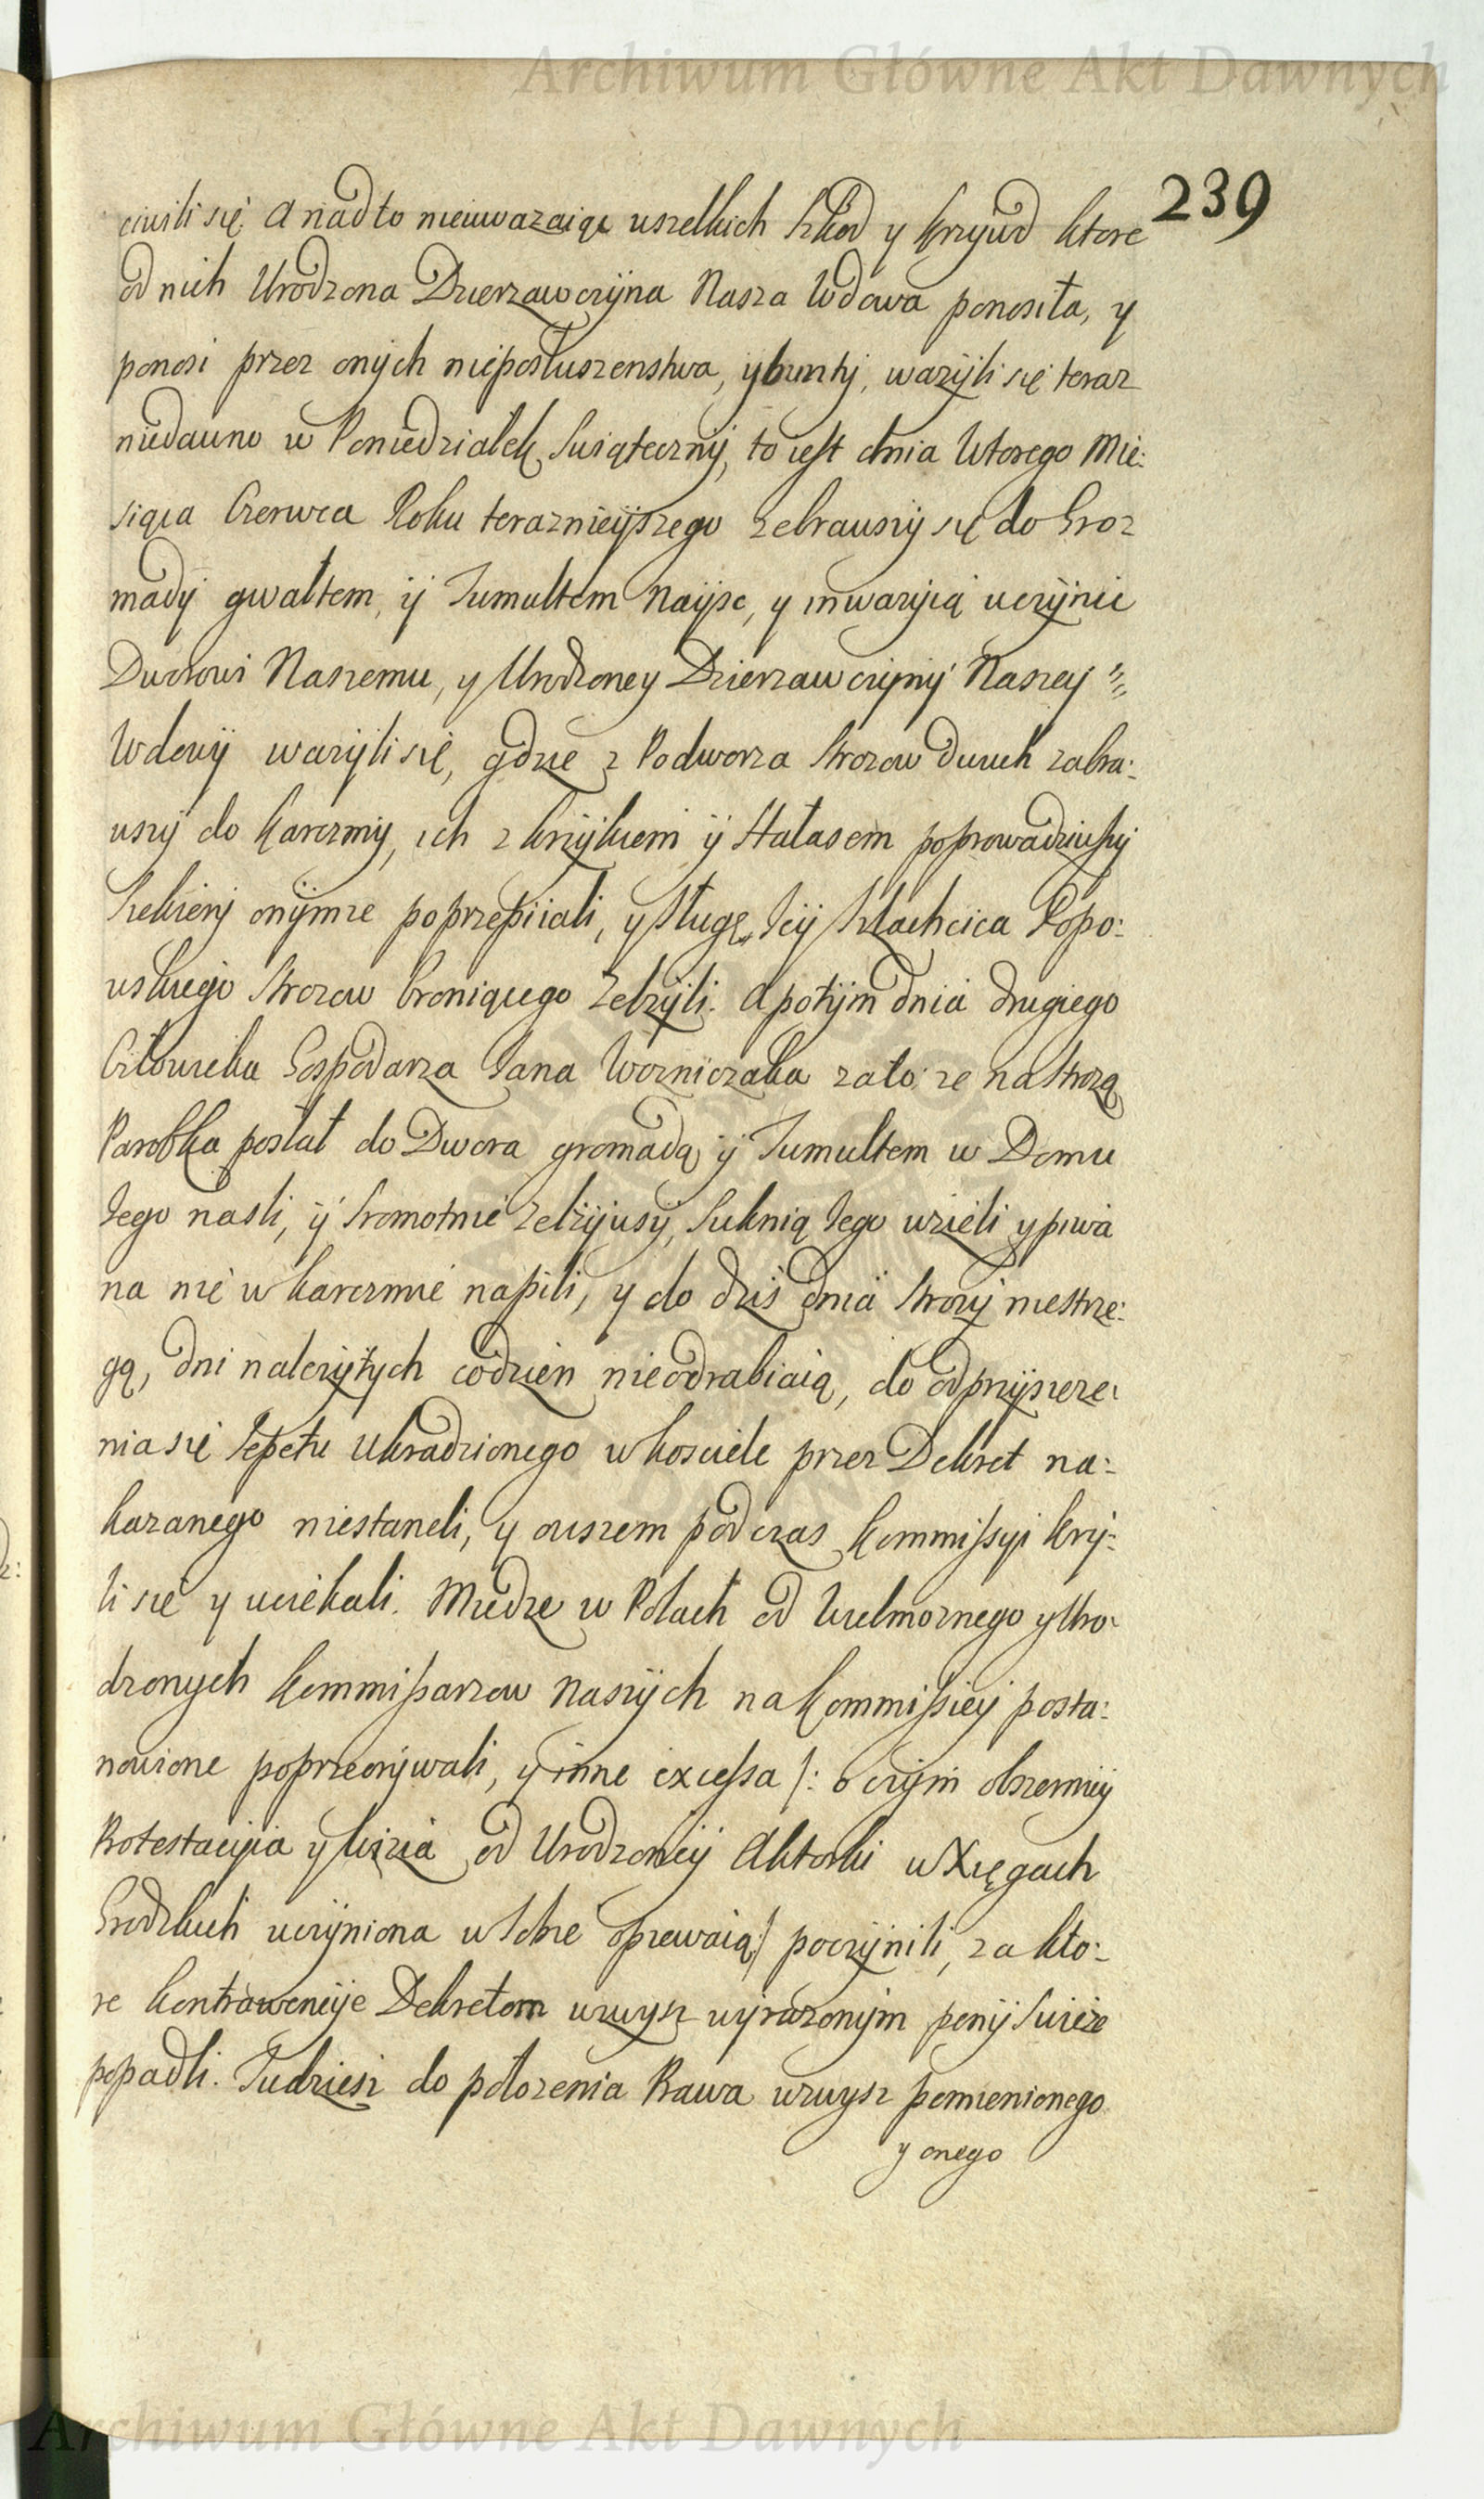 Archiwum Główne Akt Dawnych
239
ciwili się. A nadto nieuwazaiąc uszelkich Szkod y krzywd ktore
od nich Urodzona Dzierzawczÿna Nasza Wdowa ponosiła, y
ponosi przez onÿch nieposłuszenstwa, ÿ buntÿ, wazÿli się teraz
niedauno w Poniedziałek Swiątecznÿ, to iest dnia Wtorego Mie:
siąca Czerwca Roku terazniejszego zebrauszÿ się do Gro:
madÿ gwałtem, ÿ Tumultem Nayśc, y inwazÿią uczÿnic
Dworowi Naszemu, y Urodzoney Dzierzawczÿnÿ Naszey
Wdowÿ wazÿli się, gdzie z Podworza Strozow dwuch zabra:
uszÿ do Karczmÿ, ich z krzÿkiem ÿ Hałasem poprowadziwszÿ
Siekierÿ onÿmze poprzepiiali, y Sługę Jeÿ Szlachcica Popo:
uskiego Strozow broniącego Zelzÿli. A potÿm dnia drugiego
Człowieka Gospodarza Jana Wozniczaka zato: ze na Strozą
Parobka posłał do Dwora gromadą ÿ Tumultem w Domu
Jego nasli, ÿ Sromotnie Zelzÿwszÿ, Suknią Jego wzieli y piwa
na nie w karczmie napili, y do dzis dnia Strozÿ niestrze:
gą, dni nalezÿtÿch codzien nieodrabiaią, do odprzÿsięze:
nia się Sepetu Ukradzionego w kosciele przez Dekret na:
kazanego niestaneli, y owszem podczas Kommissyi krÿ:
li się y uciekali. Miedze w Polach od Wielmoznego y Uro:
dzonych Kommissarzow Naszÿch na Kommissieÿ posta:
nowione poprzeorÿwali, y inne excessa /: o czÿm obszernieÿ
Protestacÿia y wizia od Urodzoneÿ Aktorki w Xięgach
Grodzkich uczÿniona w Sobie opiewaią:/ poczÿnili, za kto:
re kontrawencÿie Dekretom wzwysz wÿrazonÿm penÿ Swieże
popadli. Tudziesz do połozenia Prawa wzwysz pomienionego
y onego
Archiwum Główne Akt Dawnych